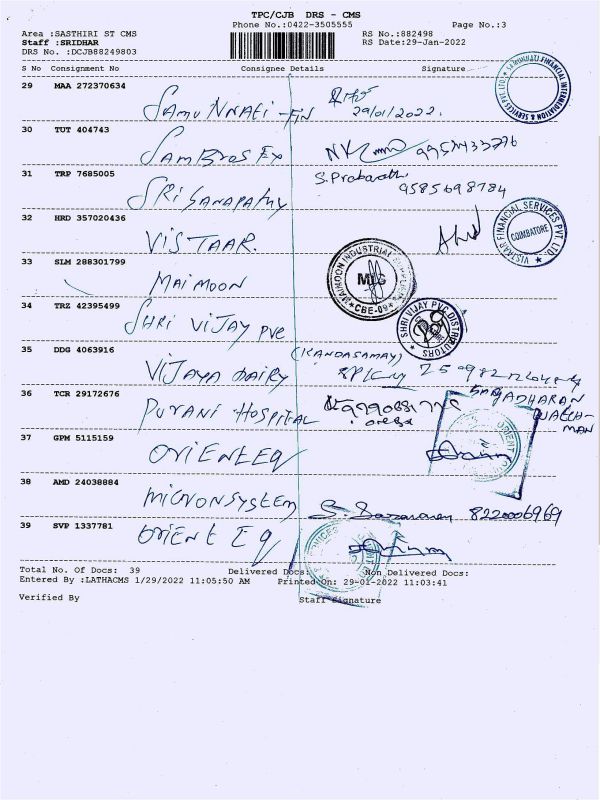 TPC/CJB DRS - CMS
Phone No.:0422-3505555 Page No.:3
Area :SASTHIRI ST CMS RS No.:882498
Staff :SRIDHAR RS Date:29-Jan-2022
DRS No. :DCJB88249803
S No Consignment No Consignee Details Signature
29 MAA 272370634
Samunnati - Fin 29/01/2022.
30 TUT 404743
Sambros Ex
31 TRP 7685005 S. Prabavathi
Sri Ganapathy 9585698784
32 HRD 357020436
VISTAAR. COIMBATORE
33 SLM 288301799
MAIMOON CBE-09
34 TRZ 42395499 SHRI VIJAY PVC DISTRIBUTORS
SHRI VIJAY PVC
35 DDG 4063916 (KANDASAMAY)
VIJAYA DAIRY
36 TCR 29172676 GANGADHARAN
PURANI HOSPITAL WATCH-
MAN
37 GPM 5115159
ORIENT EQ
38 AMD 24038884
MICRON SYSTEM 8220006969
39 SVP 1337781
ORIENT EQ
Total No. Of Docs: 39 Delivered Docs: Non Delivered Docs:
Entered By :LATHACMS 1/29/2022 11:05:50 AM Printed On: 29-01-2022 11:03:41
Verified By Staff Signature